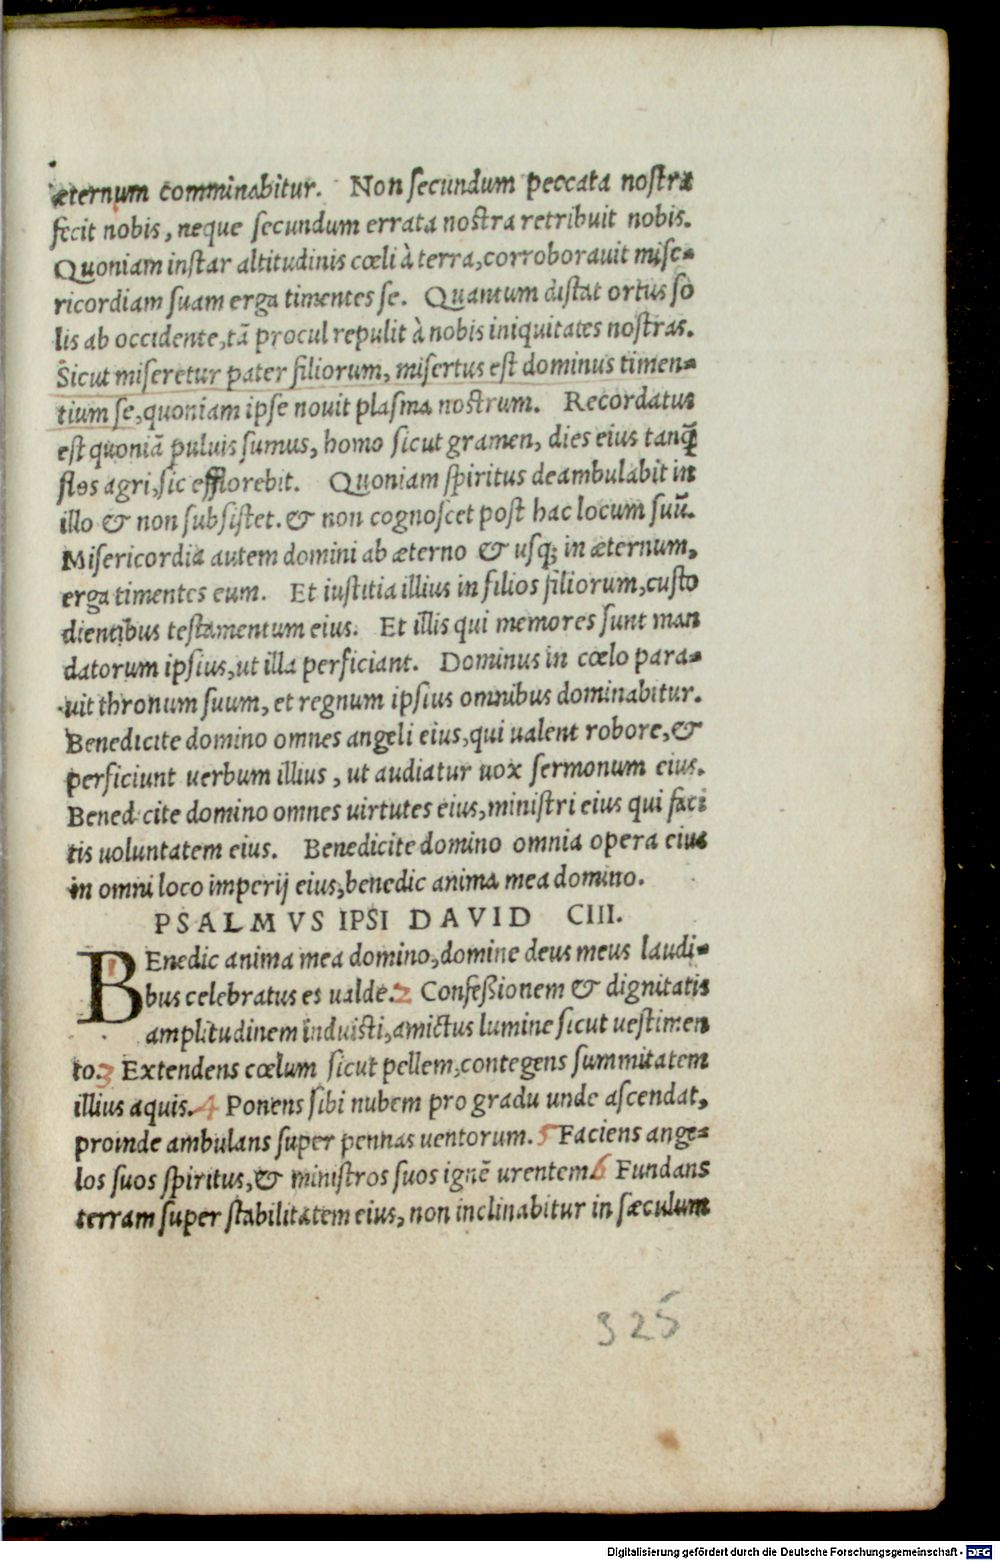 æternum comminabitur. Non secundum peccata nostra
fecit nobis, neque secundum errata nostra retribuit nobis.
Quoniam instar altitudinis cœli à terra, corroborauit mise-
ricordiam suam erga timentes se. Quantum distat ortus so
lis ab occidente, tā procul repulit à nobis iniquitates nostras.
Sicut miseretur pater filiorum, misertus est dominus timen-
tium se, quoniam ipse nouit plasma nostrum. Recordatus
est quoniā puluis sumus, homo sicut gramen, dies eius tanq̃
flos agri, sic efflorebit. Quoniam spiritus deambulabit in
illo & non subsistet. & non cognoscet post hac locum suũ.
Misericordia autem domini ab æterno & usq; in æternum,
erga timentes eum. Et iustitia illius in filios filiorum, custo
dientibus testamentum eius. Et illis qui memores sunt man
datorum ipsius, ut illa perficiant. Dominus in cœlo para-
uit thronum suum, et regnum ipsius omnibus dominabitur.
Benedicite domino omnes angeli eius, qui ualent robore, &
perficiunt uerbum illius, ut audiatur uox sermonum eius.
Bened cite domino omnes uirtutes eius, ministri eius qui faci
tis uoluntatem eius. Benedicite domino omnia opera eius
in omni loco imperij eius, benedic anima mea domino.
PSALMVS IPSI DAVID CIII.
BEnedic anima mea domino, domine deus meus laudi-
bus celebratus es ualde. 2 Confeßionem & dignitatis
amplitudinem induisti, amictus lumine sicut uestimen
to. 3 Extendens cœlum sicut pellem, contegens summitatem
illius aquis. 4 Ponens sibi nubem pro gradu unde ascendat,
proinde ambulans super pennas uentorum. 5 Faciens ange-
los suos spiritus, & ministros suos ignē urentem. 6 Fundans
terram super stabilitatem eius, non inclinabitur in sæculum
325
Digitalisierung gefördert durch die Deutsche Forschungsgemeinschaft - DFG